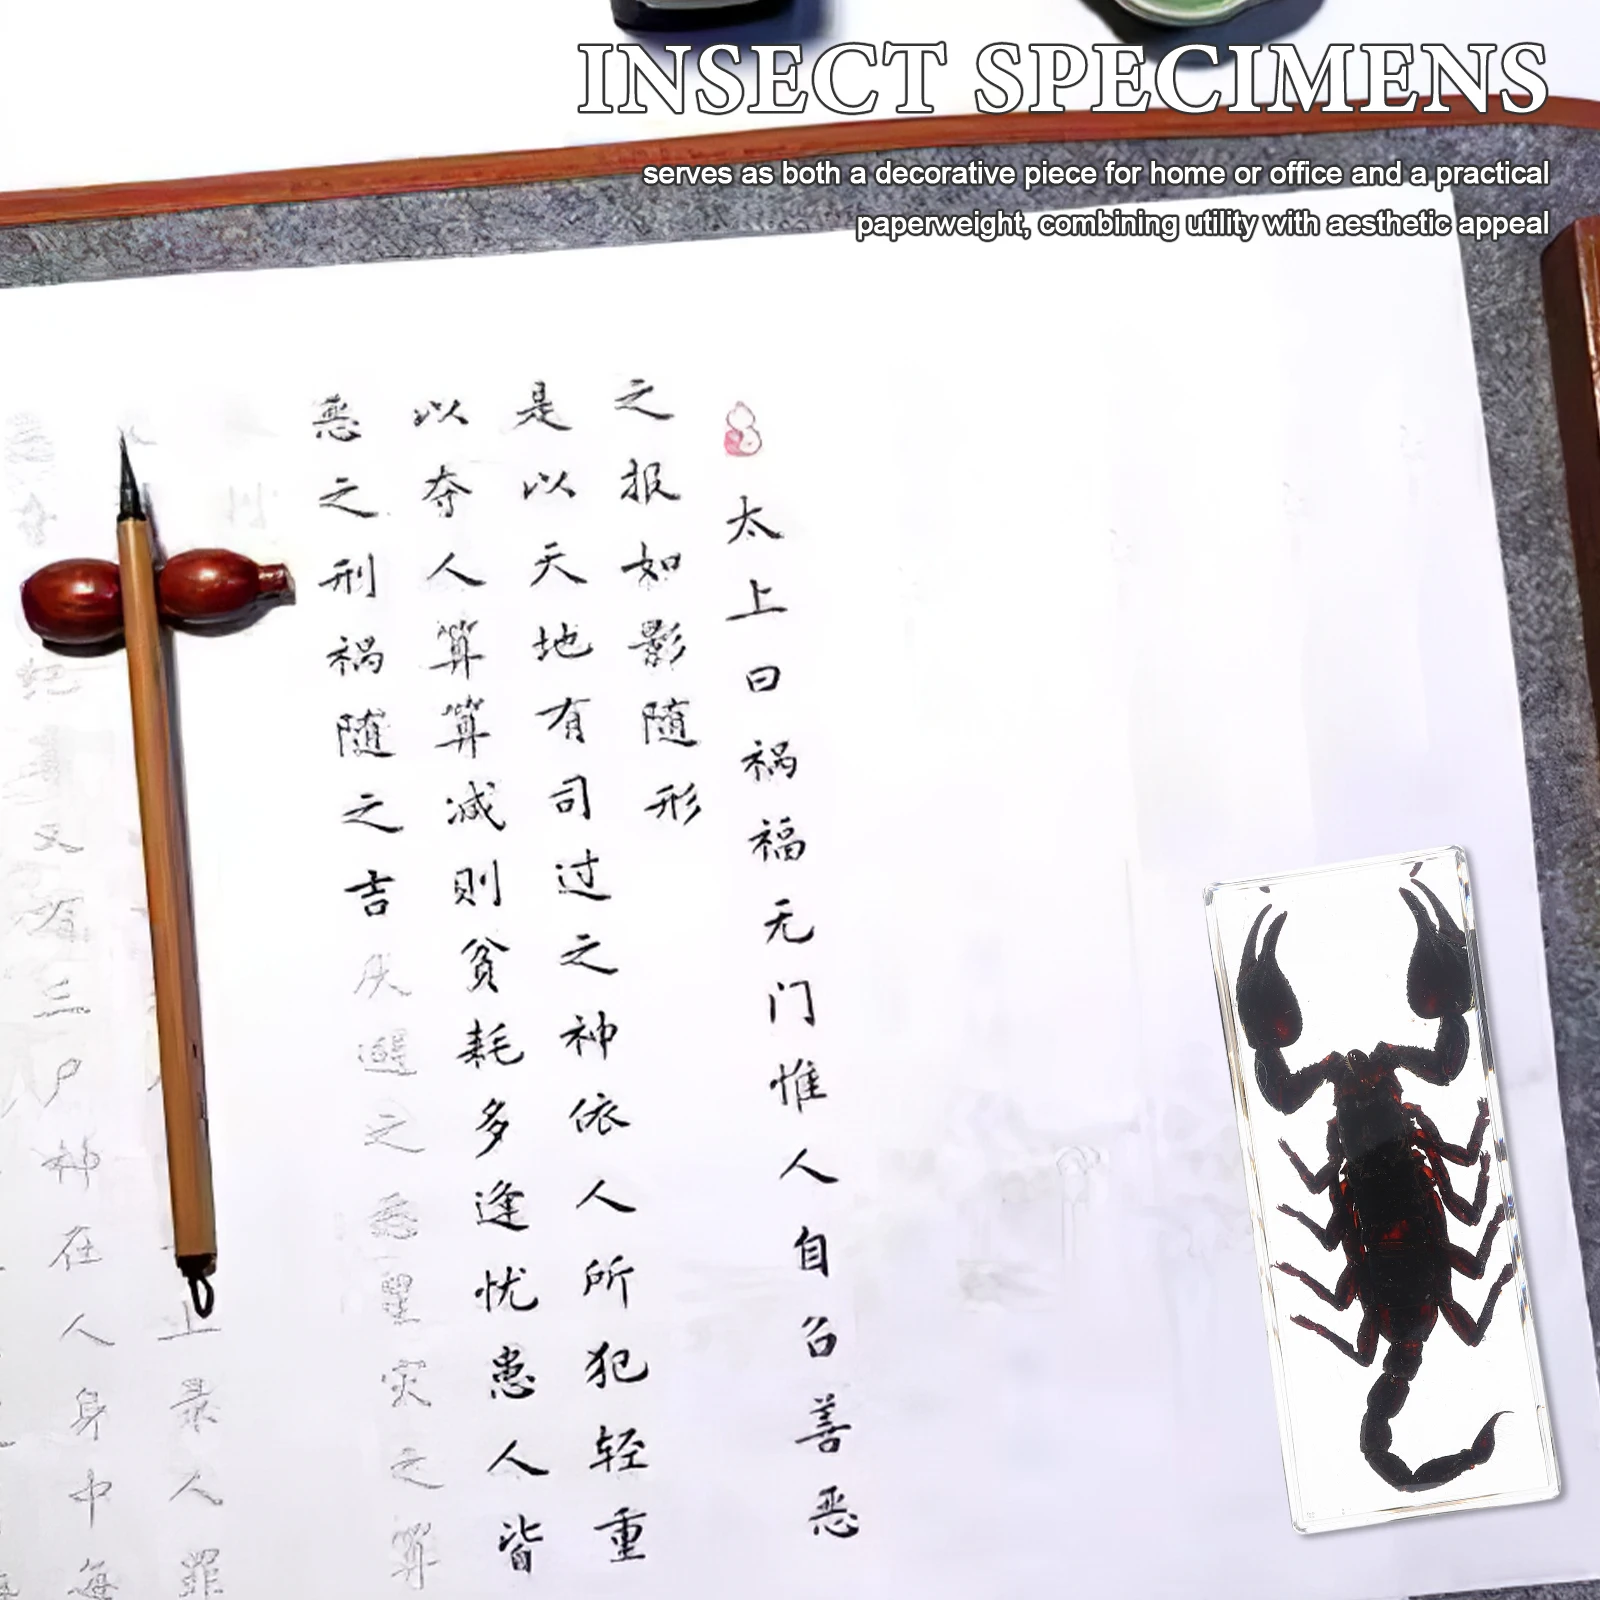 INSECT SPECIMENS
serves as both a decorative piece for home or office and a practical
paperweight, combining utility with aesthetic appeal
太上曰祸福无门惟人自召善恶
之报如影随形
是以天地有司过之神依人所犯轻重
以夺人算算减则贫耗多逢忧患人皆
恶之刑祸随之吉庆避之恶星灾之算
止录人罪
又有三尸神在人身中每